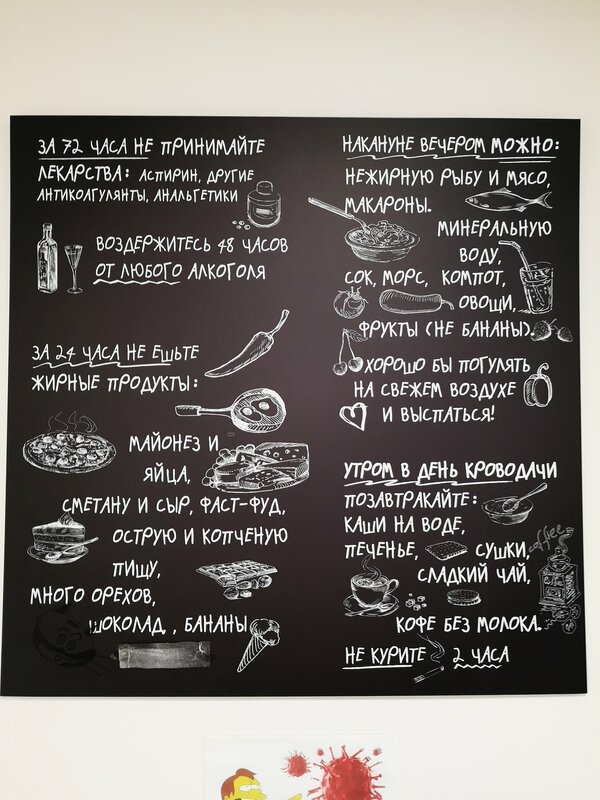 ЗА 72 ЧАСА НЕ ПРИНИМАЙТЕ
ЛЕКАРСТВА: АСПИРИН, ДРУГИЕ
АНТИКОАГУЛЯНТЫ, АНАЛЬГЕТИКИ
ВОЗДЕРЖИТЕСЬ 48 ЧАСОВ
ОТ ЛЮБОГО АЛКОГОЛЯ
ЗА 24 ЧАСА НЕ ЕШЬТЕ
ЖИРНЫЕ ПРОДУКТЫ:
МАЙОНЕЗ И
ЯЙЦА,
СМЕТАНУ И СЫР, ФАСТ-ФУД,
ОСТРУЮ И КОПЧЕНУЮ
ПИЩУ,
МНОГО ОРЕХОВ,
ШОКОЛАД, , БАНАНЫ
НАКАНУНЕ ВЕЧЕРОМ МОЖНО:
НЕЖИРНУЮ РЫБУ И МЯСО,
МАКАРОНЫ.
МИНЕРАЛЬНУЮ
ВОДУ,
СОК, МОРС, КОМПОТ,
ОВОЩИ,
ФРУКТЫ (НЕ БАНАНЫ).
ХОРОШО БЫ ПОГУЛЯТЬ
НА СВЕЖЕМ ВОЗДУХЕ
И ВЫСПАТЬСЯ!
УТРОМ В ДЕНЬ КРОВОДАЧИ
ПОЗАВТРАКАЙТЕ:
КАШИ НА ВОДЕ,
ПЕЧЕНЬЕ, СУШКИ,
coffee
СЛАДКИЙ ЧАЙ,
КОФЕ БЕЗ МОЛОКА.
НЕ КУРИТЕ 2 ЧАСА